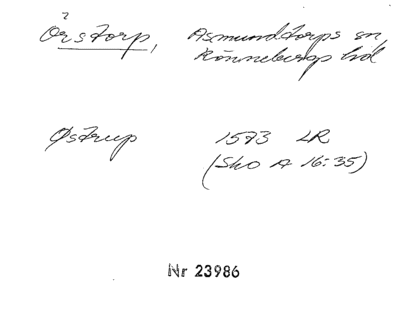 ?
Örstorp, Asmundtorps sn,
Rönnebergs hd
Østrup 1573 LR
(Sko A 16:35)
Nr 23986